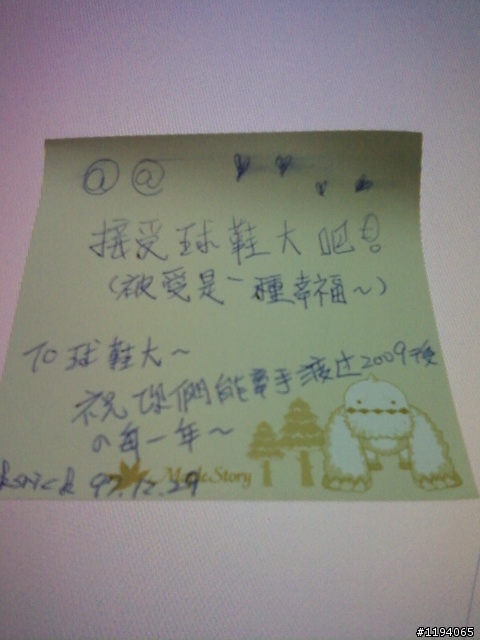 @ @
接受球鞋大吧!
(被愛是一種幸福~)
TO 球鞋大~
祝你們能牽手渡过2009後
の每一年~
MapleStory
97.12.29
#1194065